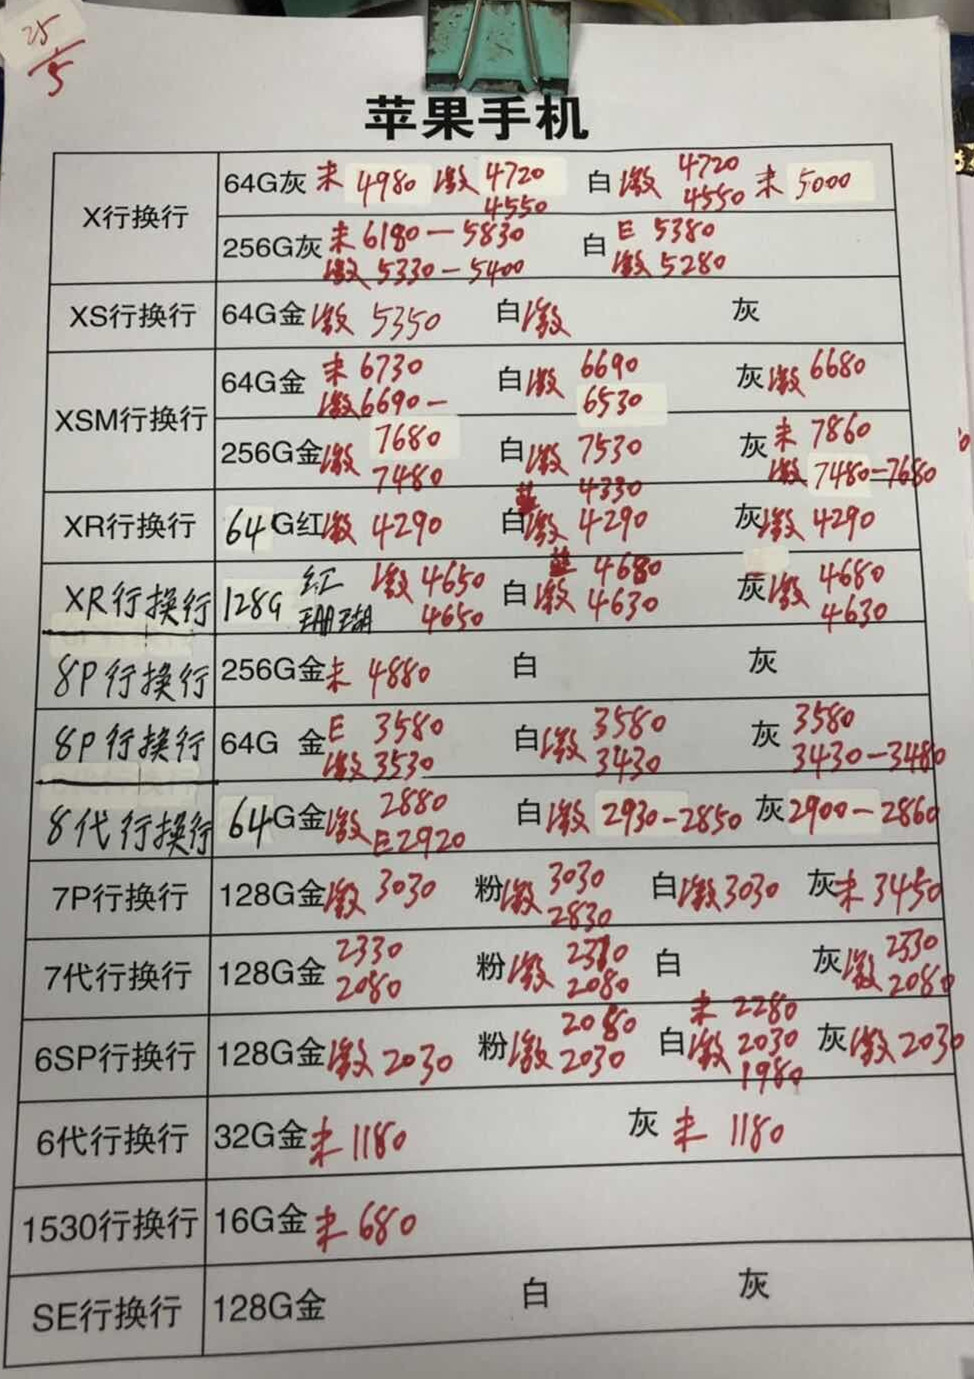 25/5
苹果手机
X行换行 64G灰 未 4980 激 4720 4550 白 激 4720 4550 未 5000
256G灰 未 6180－5830 激 5330－5400 白 E 5380 激 5280
XS行换行 64G金 激 5350 白 激 灰
XSM行换行 64G金 未 6730 激 6690－ 白 激 6690 6530 灰 激 6680
256G金 激 7680 7480 白 激 7530 灰 未 7860 激 7480－7680
XR行换行 64G红 激 4290 白 激 4330 4290 灰 激 4290
XR行换行 128G 红 珊瑚 激 4650 4650 白 激 4680 4630 灰 激 4680 4630
8P行换行 256G金 未 4880 白 灰
8P行换行 64G 金 E 3580 激 3530 白 激 3580 3430 灰 3580 3430－3480
8代行换行 64G金 激 2880 E2920 白 激 2930－2850 灰 2900－2860
7P行换行 128G金 激 3030 粉 激 3030 2830 白 激 3030 灰 未 3450
7代行换行 128G金 2330 2080 粉 激 2080 白 灰 激 2330 2080
6SP行换行 128G金 激 2030 粉 激 2080 2030 白 未 2280 激 2030 1980 灰 激 2030
6代行换行 32G金 未 1180 灰 未 1180
1530行换行 16G金 未 680
SE行换行 128G金 白 灰